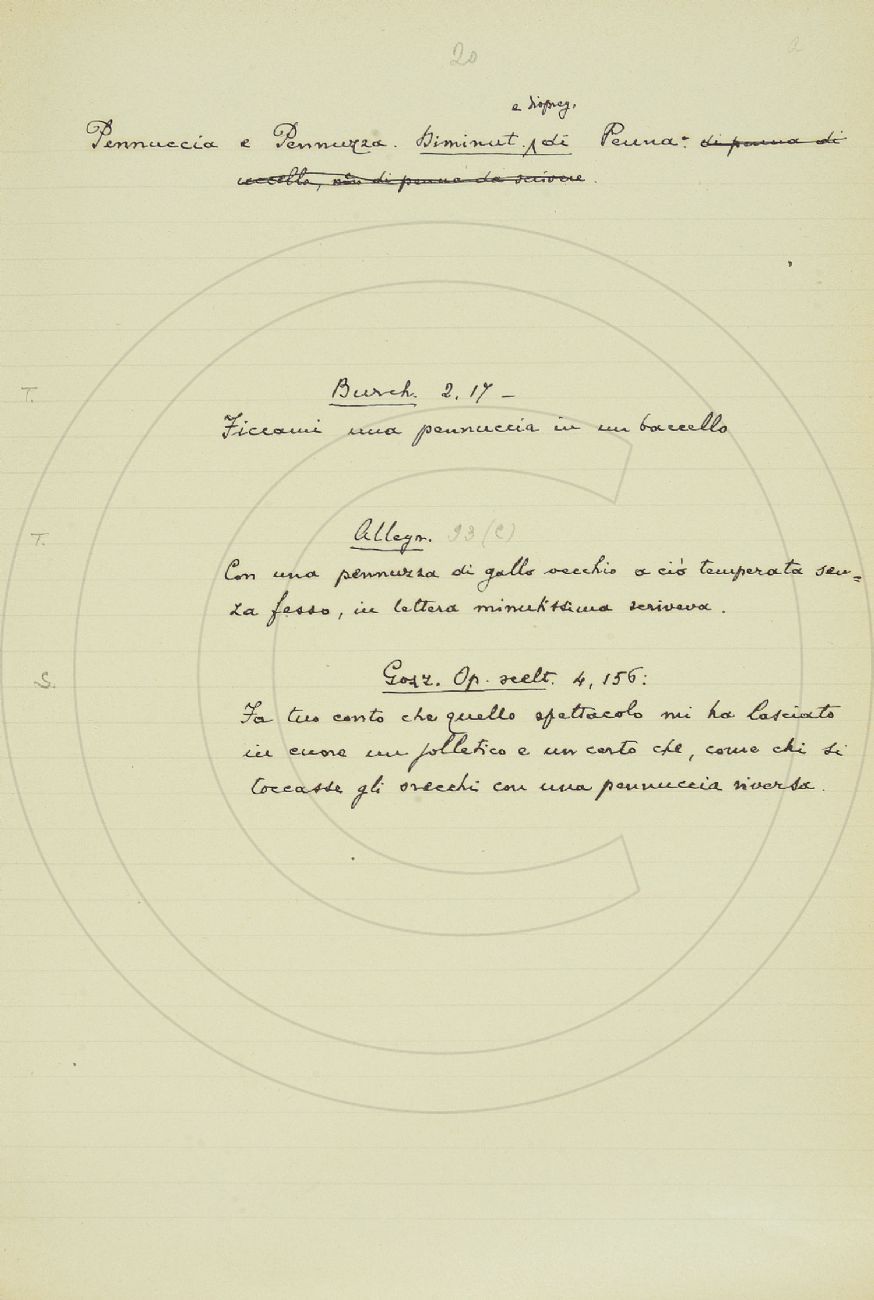 20
e dispreg.
Pennuccia e Pennuzza. Diminut. di Penna. di penna di
uccello, e di penna da scrivere.
T.
Burch. 2. 17 –
Ficcami una pennuccia in un baccello
T.
Allegr. 93 (C)
Con una pennuzza di gallo vecchio a ciò temperata sen=
za fesso, in lettera minutissima scriveva.
S.
Gozz. Op. scelt. 4, 156:
Fa tuo conto che quello spettacolo mi ha lasciato
in cuore un solletico e un certo che, come chi si
toccasse gli orecchi con una pennuccia riversa.